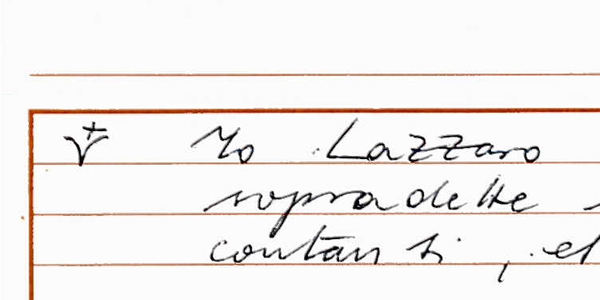 Yo Lazzaro
sopradette
contanti, et